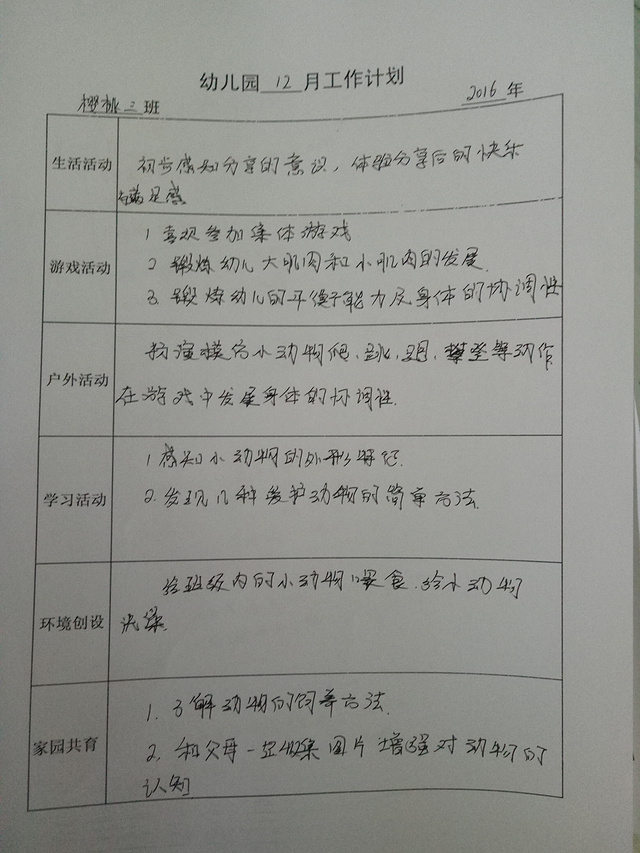 幼儿园 12 月工作计划
樱桃三班 2016 年
生活活动
初步感知分享的意识，体验分享后的快乐
与满足感
游戏活动
1 喜欢参加集体游戏
2 锻炼幼儿大肌肉和小肌肉的发展.
3. 锻炼幼儿的平衡能力及身体的协调性
户外活动
扮演模仿小动物爬、跳、跑、攀登等动作
在游戏中发展身体的协调性.
学习活动
1 感知小动物的外形特征.
2. 发现几种爱护动物的简单方法.
环境创设
给班级内的小动物喂食.给小动物
洗澡.
家园共育
1. 了解动物的饲养方法.
2. 和父母一起收集图片增强对动物的
认知